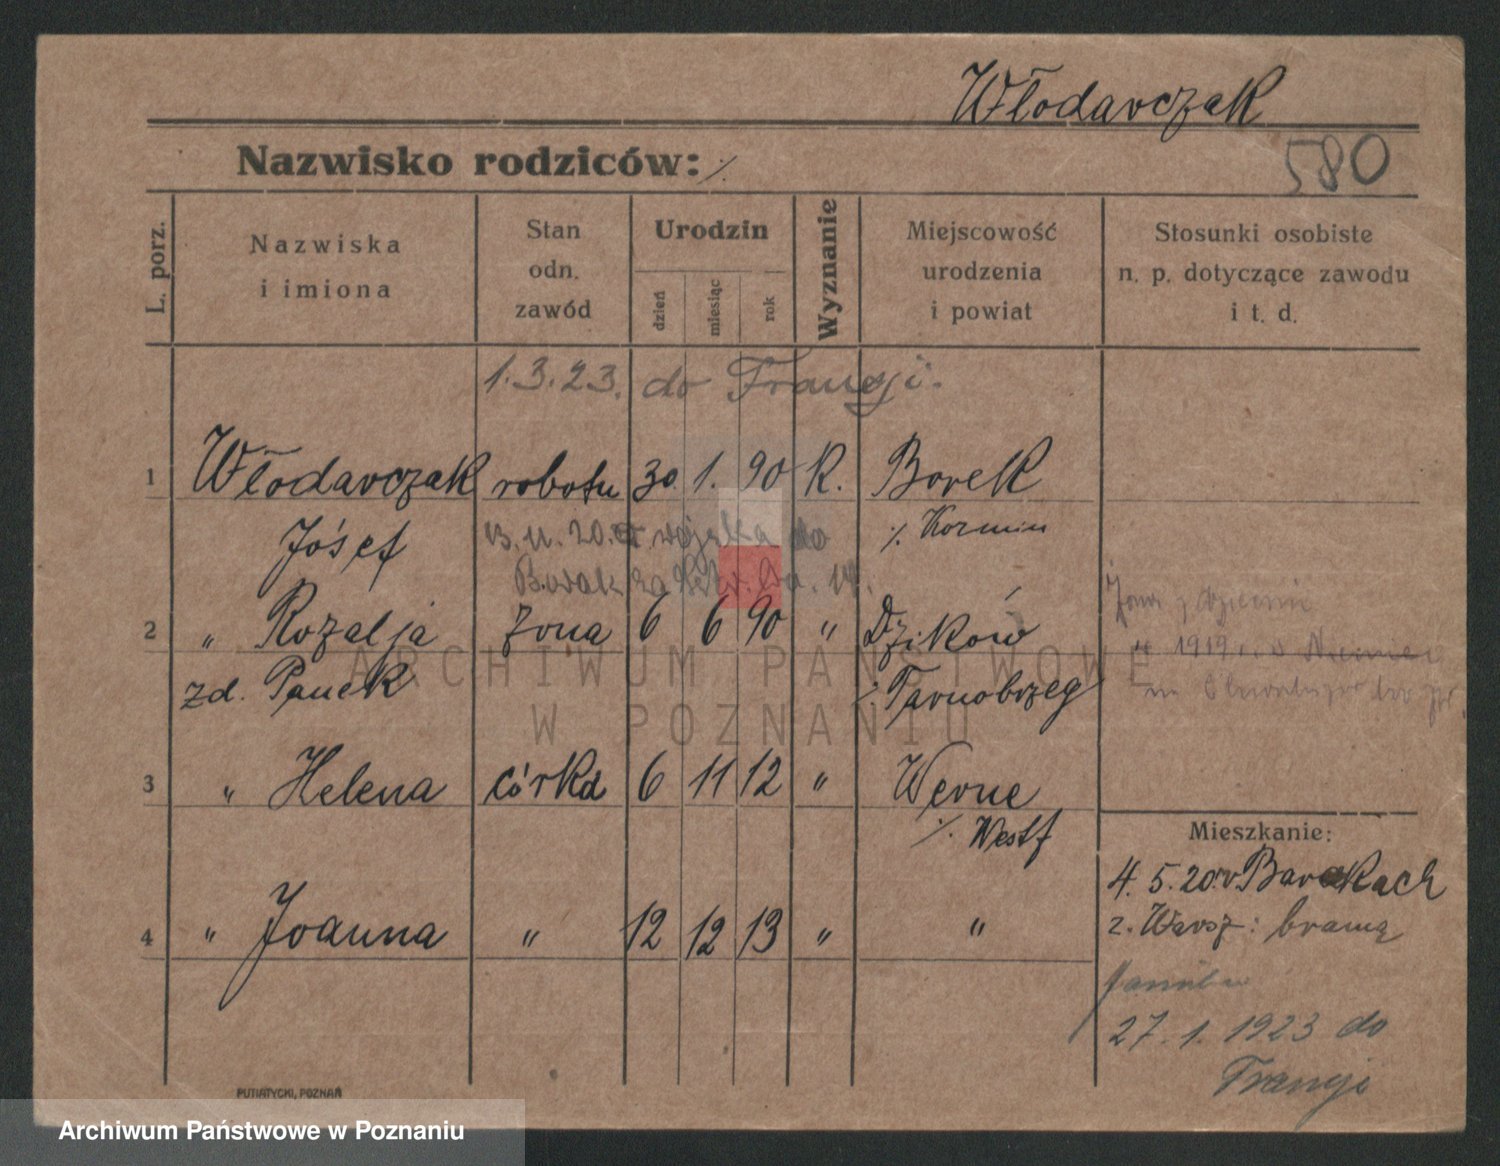 Włodarczak
580
Nazwisko rodziców: ⁒
L. porz.
Nazwiska
i imiona
Stan
odn.
zawód
Urodzin
dzień
miesiąc
rok
Wyznanie
Miejscowość
urodzenia
i powiat
Stosunki osobiste
n. p. dotyczące zawodu
i t. d.
1.3.23. do Francji.
1 Włodarczak robotn 30. 1. 90 K. Borek
Józef ⁒ Kozmin
13.11.20. z wojska do
Barak
2 " Rozalja żona 6 6 90 " Dzików
zd. Panek ⁒ Tarnobrzeg
Żona z dziećmi
w 1919
3 " Helena córka 6 11 12 " Werne
⁒ Westf
4 " Joanna " 12 12 13 " "
Mieszkanie:
4.5.20 w Barakach
z. Warsz: bramą
27.1.1923 do
Francji
PUTIATYCKI, POZNAŃ
ARCHIWUM PAŃSTWOWE
W POZNANIU
Archiwum Państwowe w Poznaniu